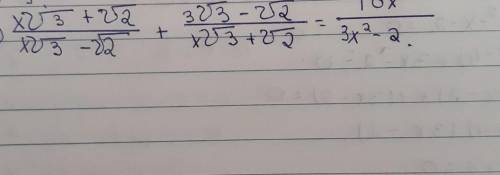 ) x√3 + √2 / x√3 - √2 + 3√3 - √2 / x√3 + √2 = 10x / 3x² - 2.